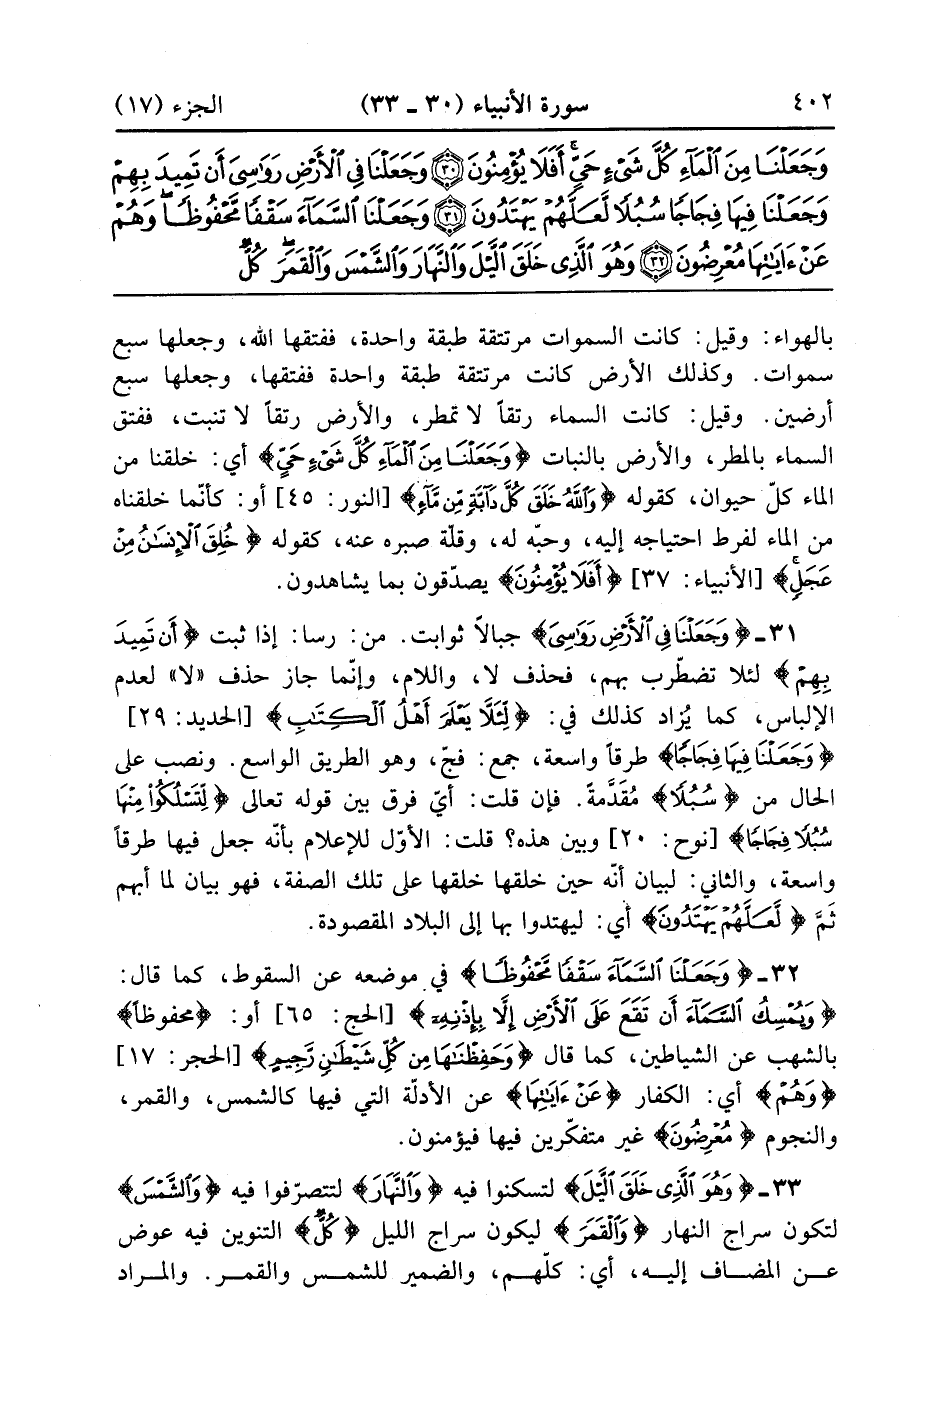 ٤٠٢ سورة الأنبياء (٣٠ ـ ٣٣) الجزء (١٧)
وَجَعَلْنَا مِنَ الْمَآءِ كُلَّ شَىْءٍ حَيٍّ أَفَلَا يُؤْمِنُونَ ٣٠ وَجَعَلْنَا فِي الْأَرْضِ رَوَاسِىَ أَن تَمِيدَ بِهِمْ
وَجَعَلْنَا فِيهَا فِجَاجًا سُبُلًا لَّعَلَّهُمْ يَهْتَدُونَ ٣١ وَجَعَلْنَا السَّمَآءَ سَقْفًا مَّحْفُوظًا وَهُمْ
عَنْ ءَايَٰتِهَا مُعْرِضُونَ ٣٢ وَهُوَ الَّذِى خَلَقَ الَّيْلَ وَالنَّهَارَ وَالشَّمْسَ وَالْقَمَرَ كُلٌّ
بالهواء: وقيل: كانت السموات مرتتقة طبقة واحدة، ففتقها الله، وجعلها سبع
سموات. وكذلك الأرض كانت مرتتقة طبقة واحدة ففتقها، وجعلها سبع
أرضين. وقيل: كانت السماء رتقاً لا تمطر، والأرض رتقاً لا تنبت، ففتق
السماء بالمطر، والأرض بالنبات ﴿وَجَعَلْنَا مِنَ الْمَآءِ كُلَّ شَىْءٍ حَيٍّ﴾ أي: خلقنا من
الماء كلّ حيوان، كقوله ﴿وَاللَّهُ خَلَقَ كُلَّ دَآبَّةٍ مِّن مَّآءٍ﴾ [النور: ٤٥] أو: كأنّما خلقناه
من الماء لفرط احتياجه إليه، وحبّه له، وقلّة صبره عنه، كقوله ﴿خُلِقَ الْإِنسَٰنُ مِنْ
عَجَلٍ﴾ [الأنبياء: ٣٧] ﴿أَفَلَا يُؤْمِنُونَ﴾ يصدّقون بما يشاهدون.
٣١ـ ﴿وَجَعَلْنَا فِي الْأَرْضِ رَوَاسِىَ﴾ جبالاً ثوابت. من: رسا: إذا ثبت ﴿أَن تَمِيدَ
بِهِمْ﴾ لئلا تضطّرب بهم، فحذف لا، واللام، وإنّما جاز حذف «لا» لعدم
الإلباس، كما يُزاد كذلك في: ﴿لِّئَلَّا يَعْلَمَ أَهْلُ الْكِتَٰبِ﴾ [الحديد: ٢٩]
﴿وَجَعَلْنَا فِيهَا فِجَاجًا﴾ طرقاً واسعة، جمع: فجّ، وهو الطريق الواسع. ونصب على
الحال من ﴿سُبُلًا﴾ مُقَدَّمةً. فإن قلت: أيّ فرق بين قوله تعالى ﴿لِّتَسْلُكُوا۟ مِنْهَا
سُبُلًا فِجَاجًا﴾ [نوح: ٢٠] وبين هذه؟ قلت: الأوّل للإعلام بأنّه جعل فيها طرقاً
واسعة، والثاني: لبيان أنّه حين خلقها خلقها على تلك الصفة، فهو بيان لما أبهم
ثَمَّ ﴿لَّعَلَّهُمْ يَهْتَدُونَ﴾ أي: ليهتدوا بها إلى البلاد المقصودة.
٣٢ـ ﴿وَجَعَلْنَا السَّمَآءَ سَقْفًا مَّحْفُوظًا﴾ في موضعه عن السقوط، كما قال:
﴿وَيُمْسِكُ السَّمَآءَ أَن تَقَعَ عَلَى الْأَرْضِ إِلَّا بِإِذْنِهِۦ﴾ [الحج: ٦٥] أو: ﴿محفوظاً﴾
بالشهب عن الشياطين، كما قال ﴿وَحَفِظْنَٰهَا مِن كُلِّ شَيْطَٰنٍ رَّجِيمٍ﴾ [الحجر: ١٧]
﴿وَهُمْ﴾ أي: الكفار ﴿عَنْ ءَايَٰتِهَا﴾ عن الأدلّة التي فيها كالشمس، والقمر،
والنجوم ﴿مُعْرِضُونَ﴾ غير متفكّرين فيها فيؤمنون.
٣٣ـ ﴿وَهُوَ الَّذِى خَلَقَ الَّيْلَ﴾ لتسكنوا فيه ﴿وَالنَّهَارَ﴾ لتتصرّفوا فيه ﴿وَالشَّمْسَ﴾
لتكون سراج النهار ﴿وَالْقَمَرَ﴾ ليكون سراج الليل ﴿كُلٌّ﴾ التنوين فيه عوض
عن المضاف إليه، أي: كلّهم، والضمير للشمس والقمر. والمراد